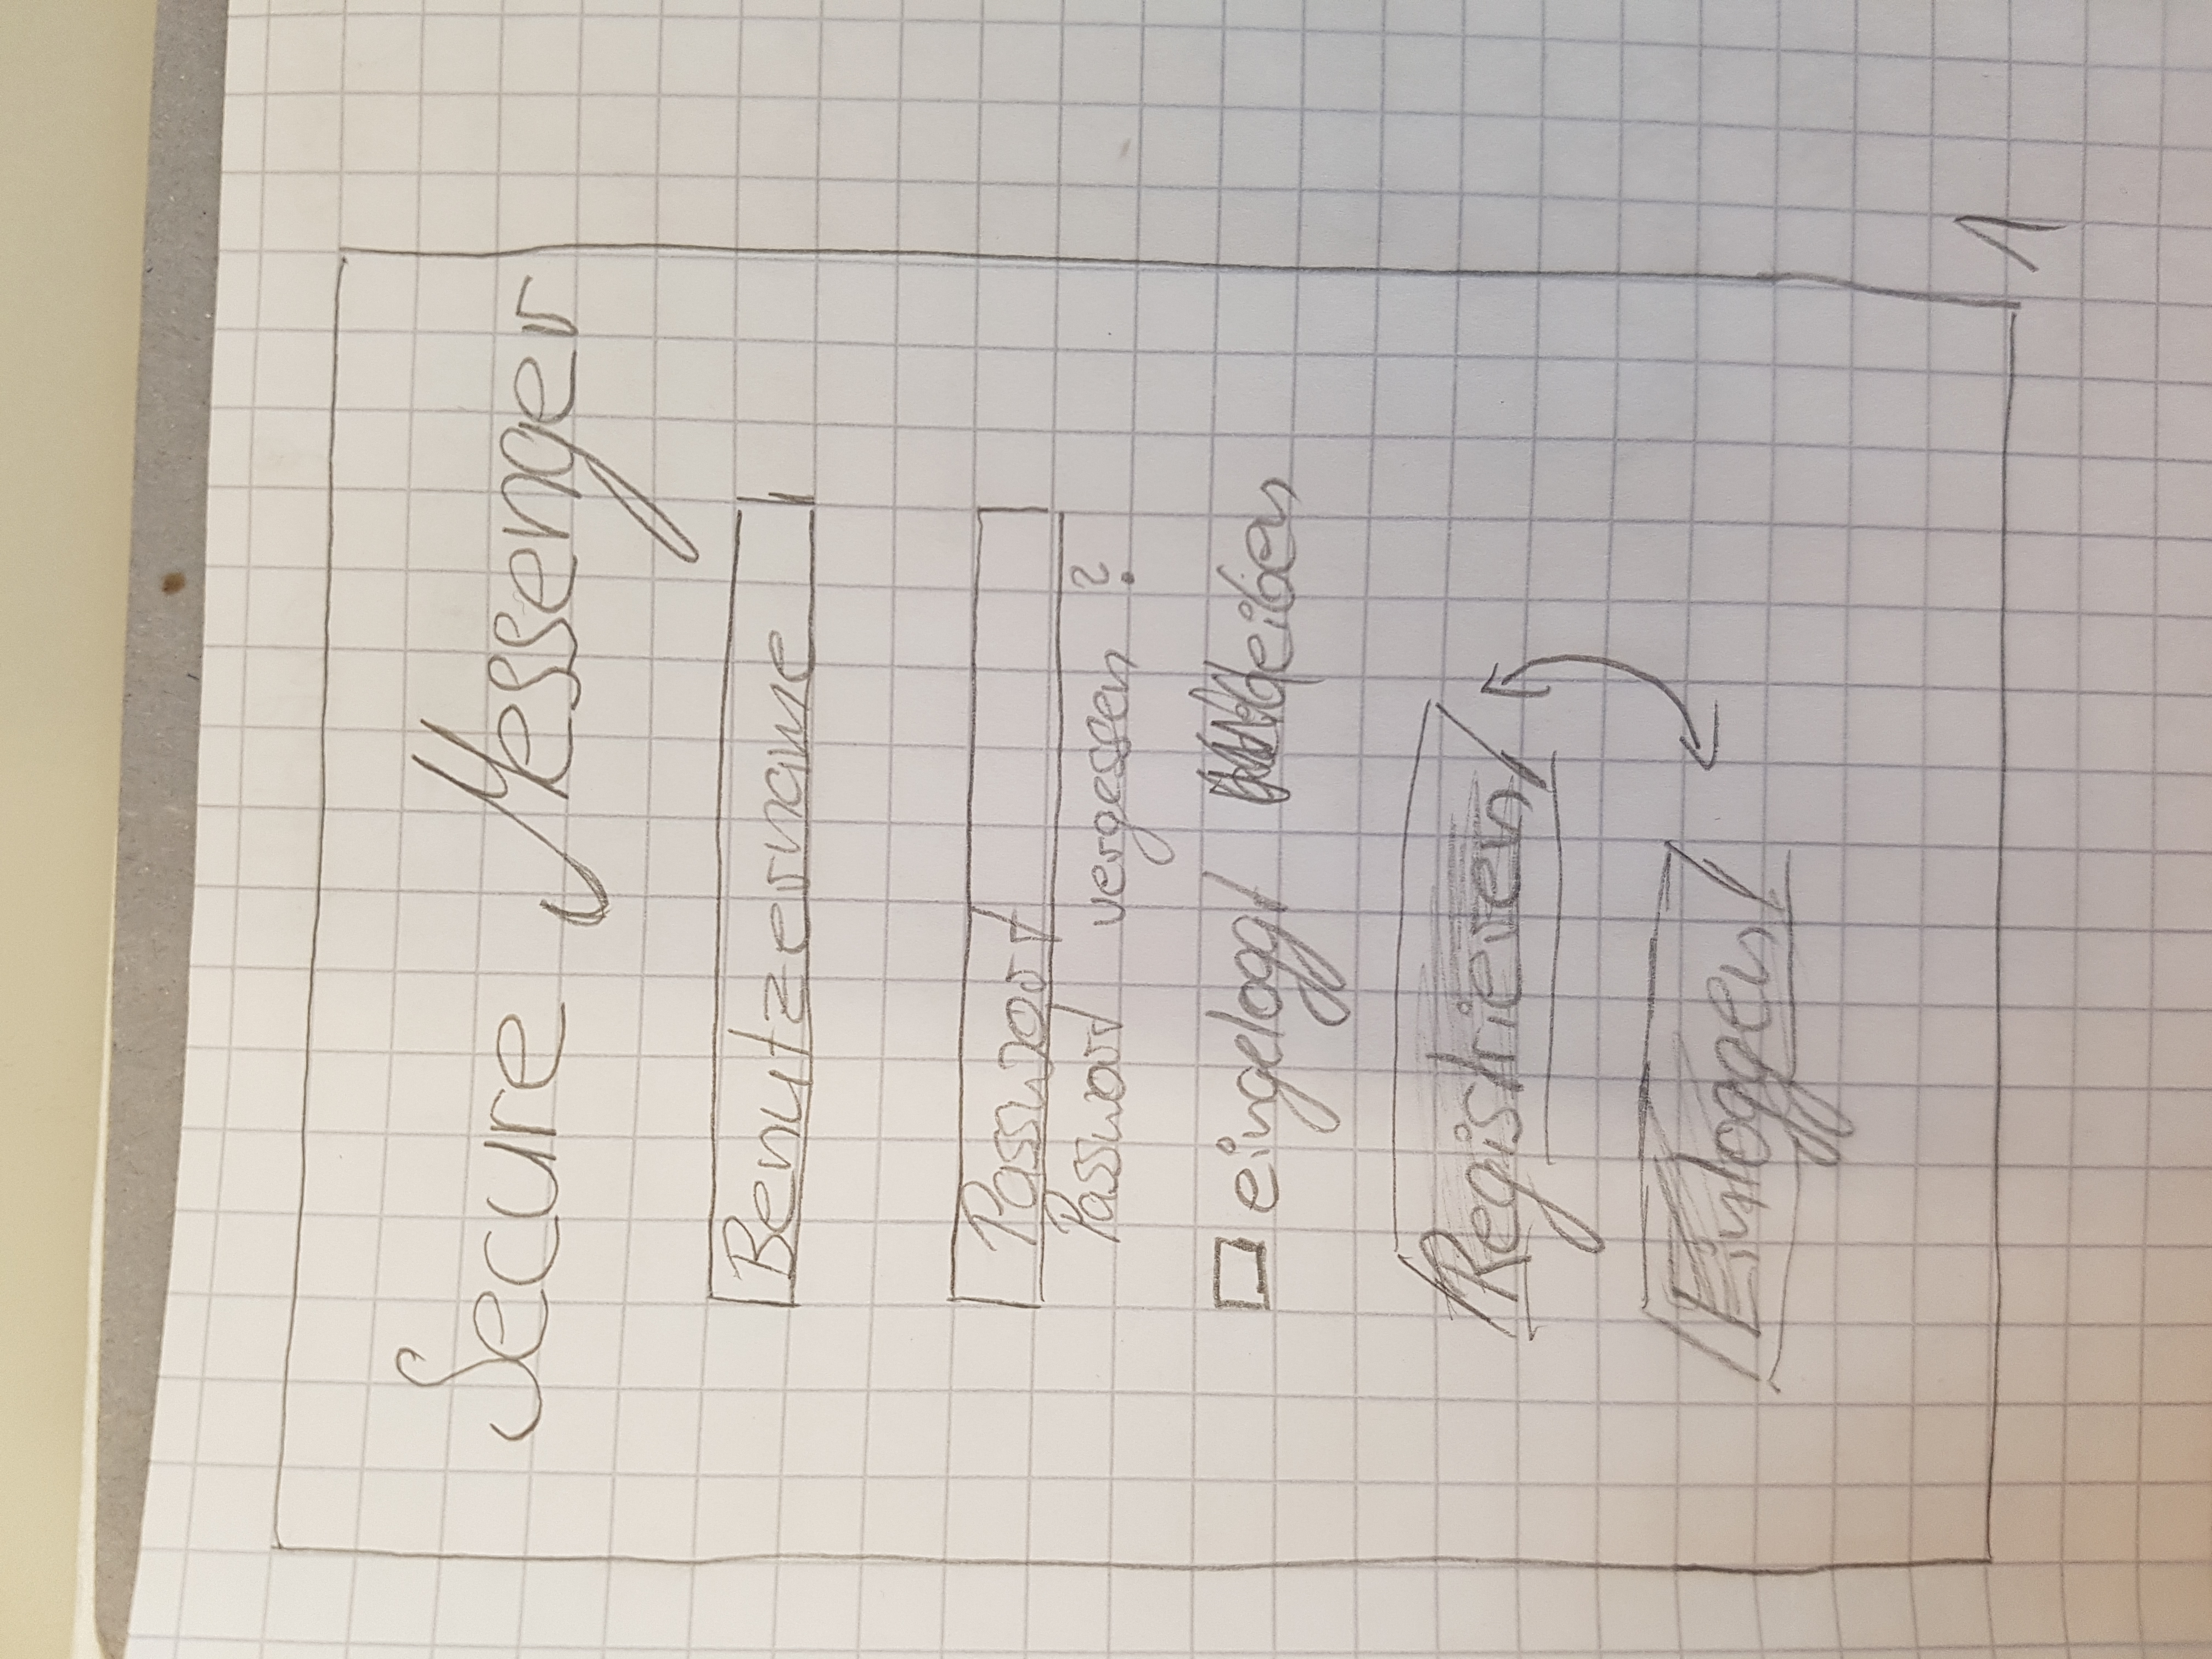 Secure Messenger
Benutzername
Passwort
Passwort vergessen ?
eingeloggt bleiben
Registrieren
Einloggen
1